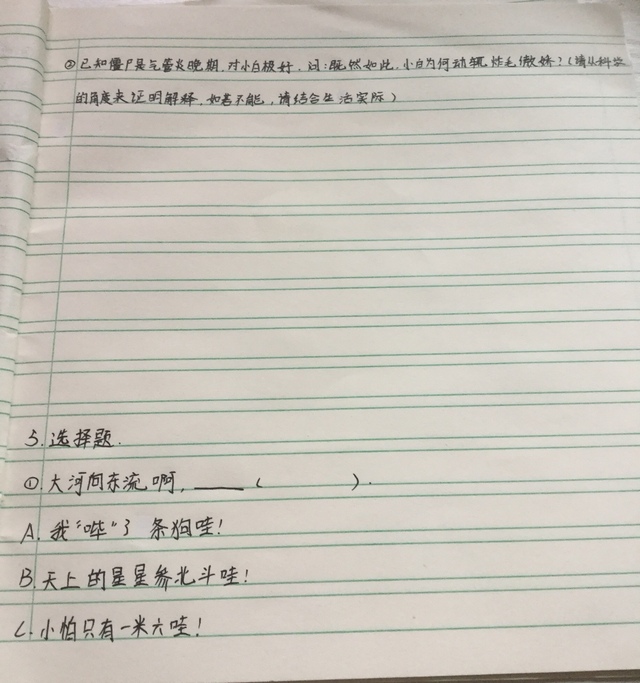 ②已知僵尸是气管炎晚期,对小白极好,问:既然如此,小白为何动辄炸毛傲娇?(请从科学
的角度来证明解释,如若不能,请结合生活实际)
5.选择题.
①大河向东流啊,____( ).
A.我“哔”了条狗哇!
B.天上的星星参北斗哇!
C.小怕只有一米六哇!